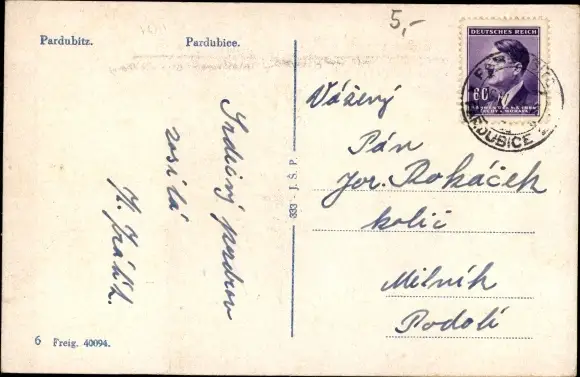 Pardubitz.
Pardubice.
5,-
DEUTSCHES REICH
60
PARDUBICE
Vážený
Pán
Jos. Rokáček
kolić
Milník
Podolí
Srdečný pozdrav
zasílá
833 - J. Š. P.
6 Freig. 40094.